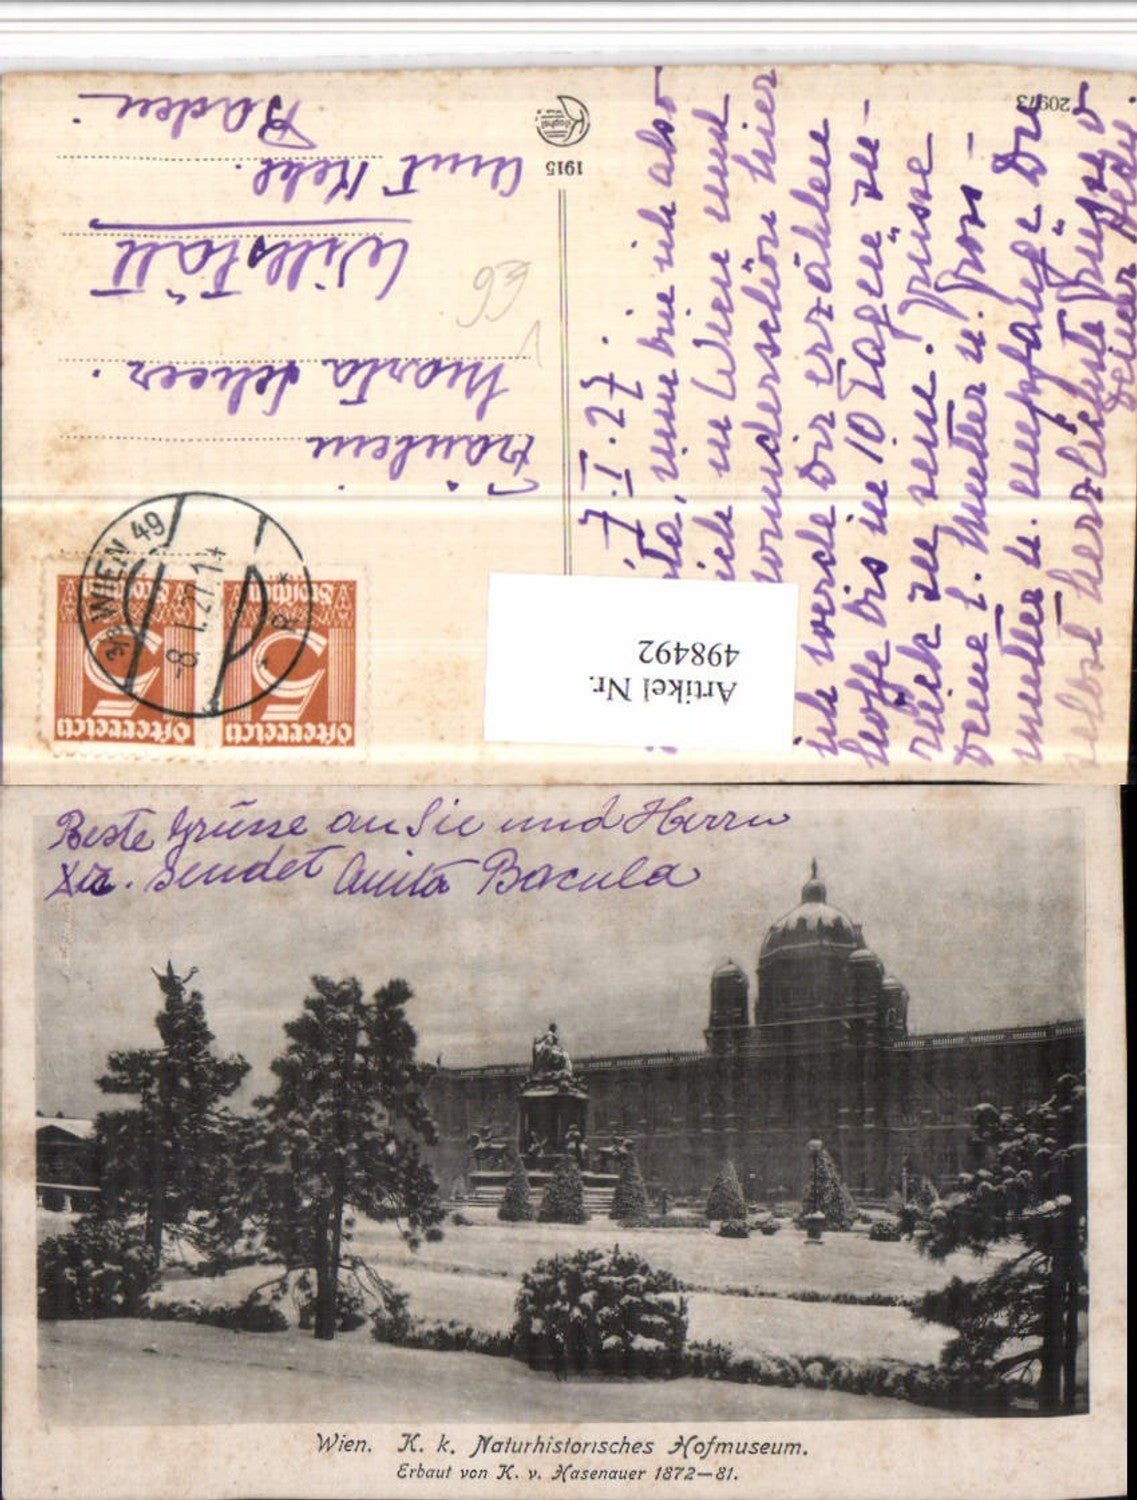 20973
1915
7. I. 27.
nun bin ich also
in Wien und
wunderschön hier
ich werde Dir erzählen
hoffe bis in 10 Tagen zu-
rück zu sein. Grüsse
Deine l. Mutter u. Gross-
mutter u. empfange Du
selbst herzlichste Grüsse v
Deiner
Fräulein
Marta Scheer.
Willstätt
Amt Kehl.
Baden
93
1
WIEN 49
-8.I.27.1
Österreich
5
Groschen
Österreich
5
Groschen
Artikel Nr.
498492
Beste Grüsse an Sie und Herrn
sendet Anita Bacula
Wien. K. k. Naturhistorisches Hofmuseum.
Erbaut von K. v. Hasenauer 1872—81.